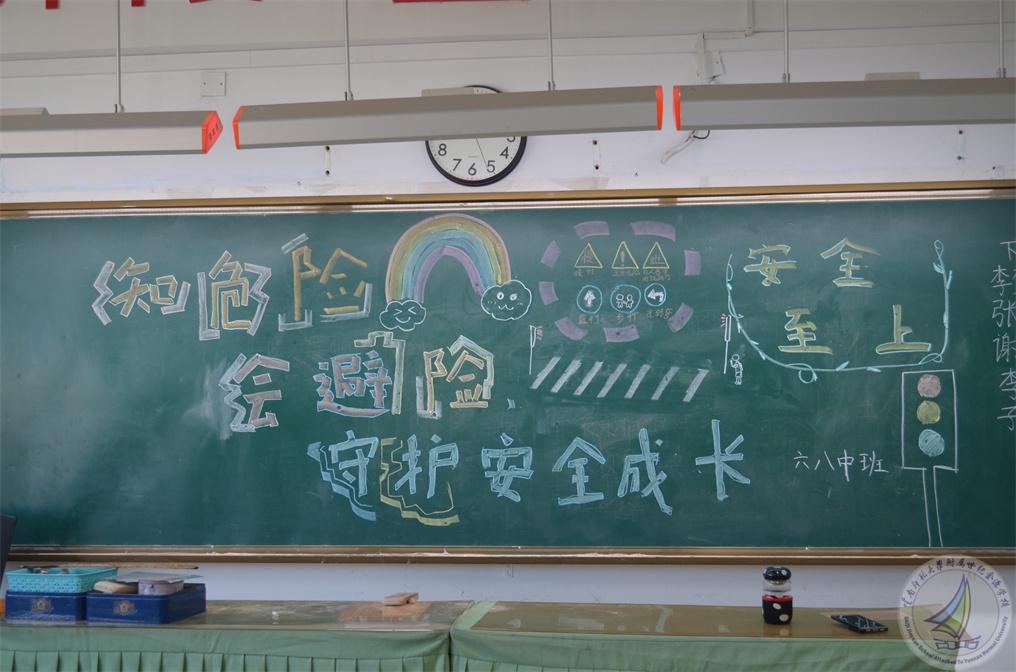 8 7 6 5
知危险
安全
直行 步行
至上
绘避险
守护安全成长
六八中班
李
张
谢
李
子